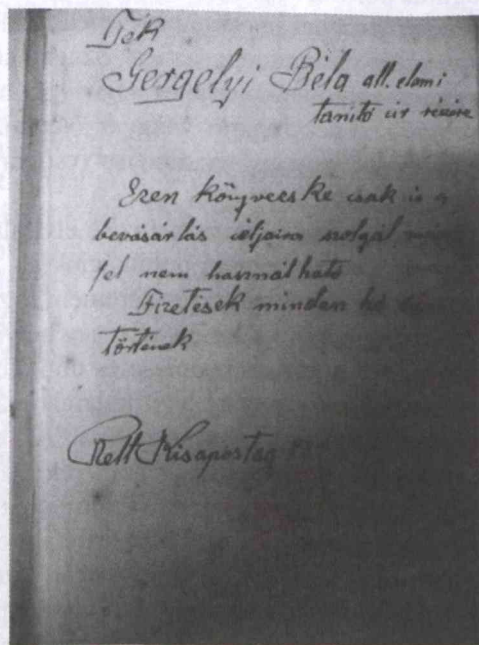 Tek
Gergelyi Béla áll. elemi
tanító úr részire
Ezen könyvecske csak is a
bevásárlás céljaira szolgál
fel nem használható
Fizetések minden hó
történek
Kisapostag